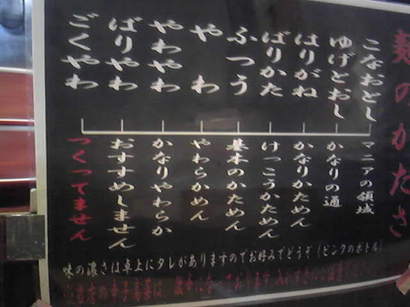 麺のかたさ
こなおとし
マニアの領域
ゆげどおし
かなりの通
はりがね
かなりかためん
ばりかた
けっこうかためん
ふつう
基本のかためん
やわ
やわらかめん
やわやわ
かなりやわらか
ばりやわ
おすすめしません
ごくやわ
つくってません
味の濃さは卓上にタレがありますのでお好みでどうぞ(ピンクのボトル)